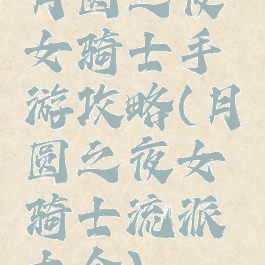 月圆之夜
女骑士手
游攻略(月
圆之夜女
骑士流派
大全)